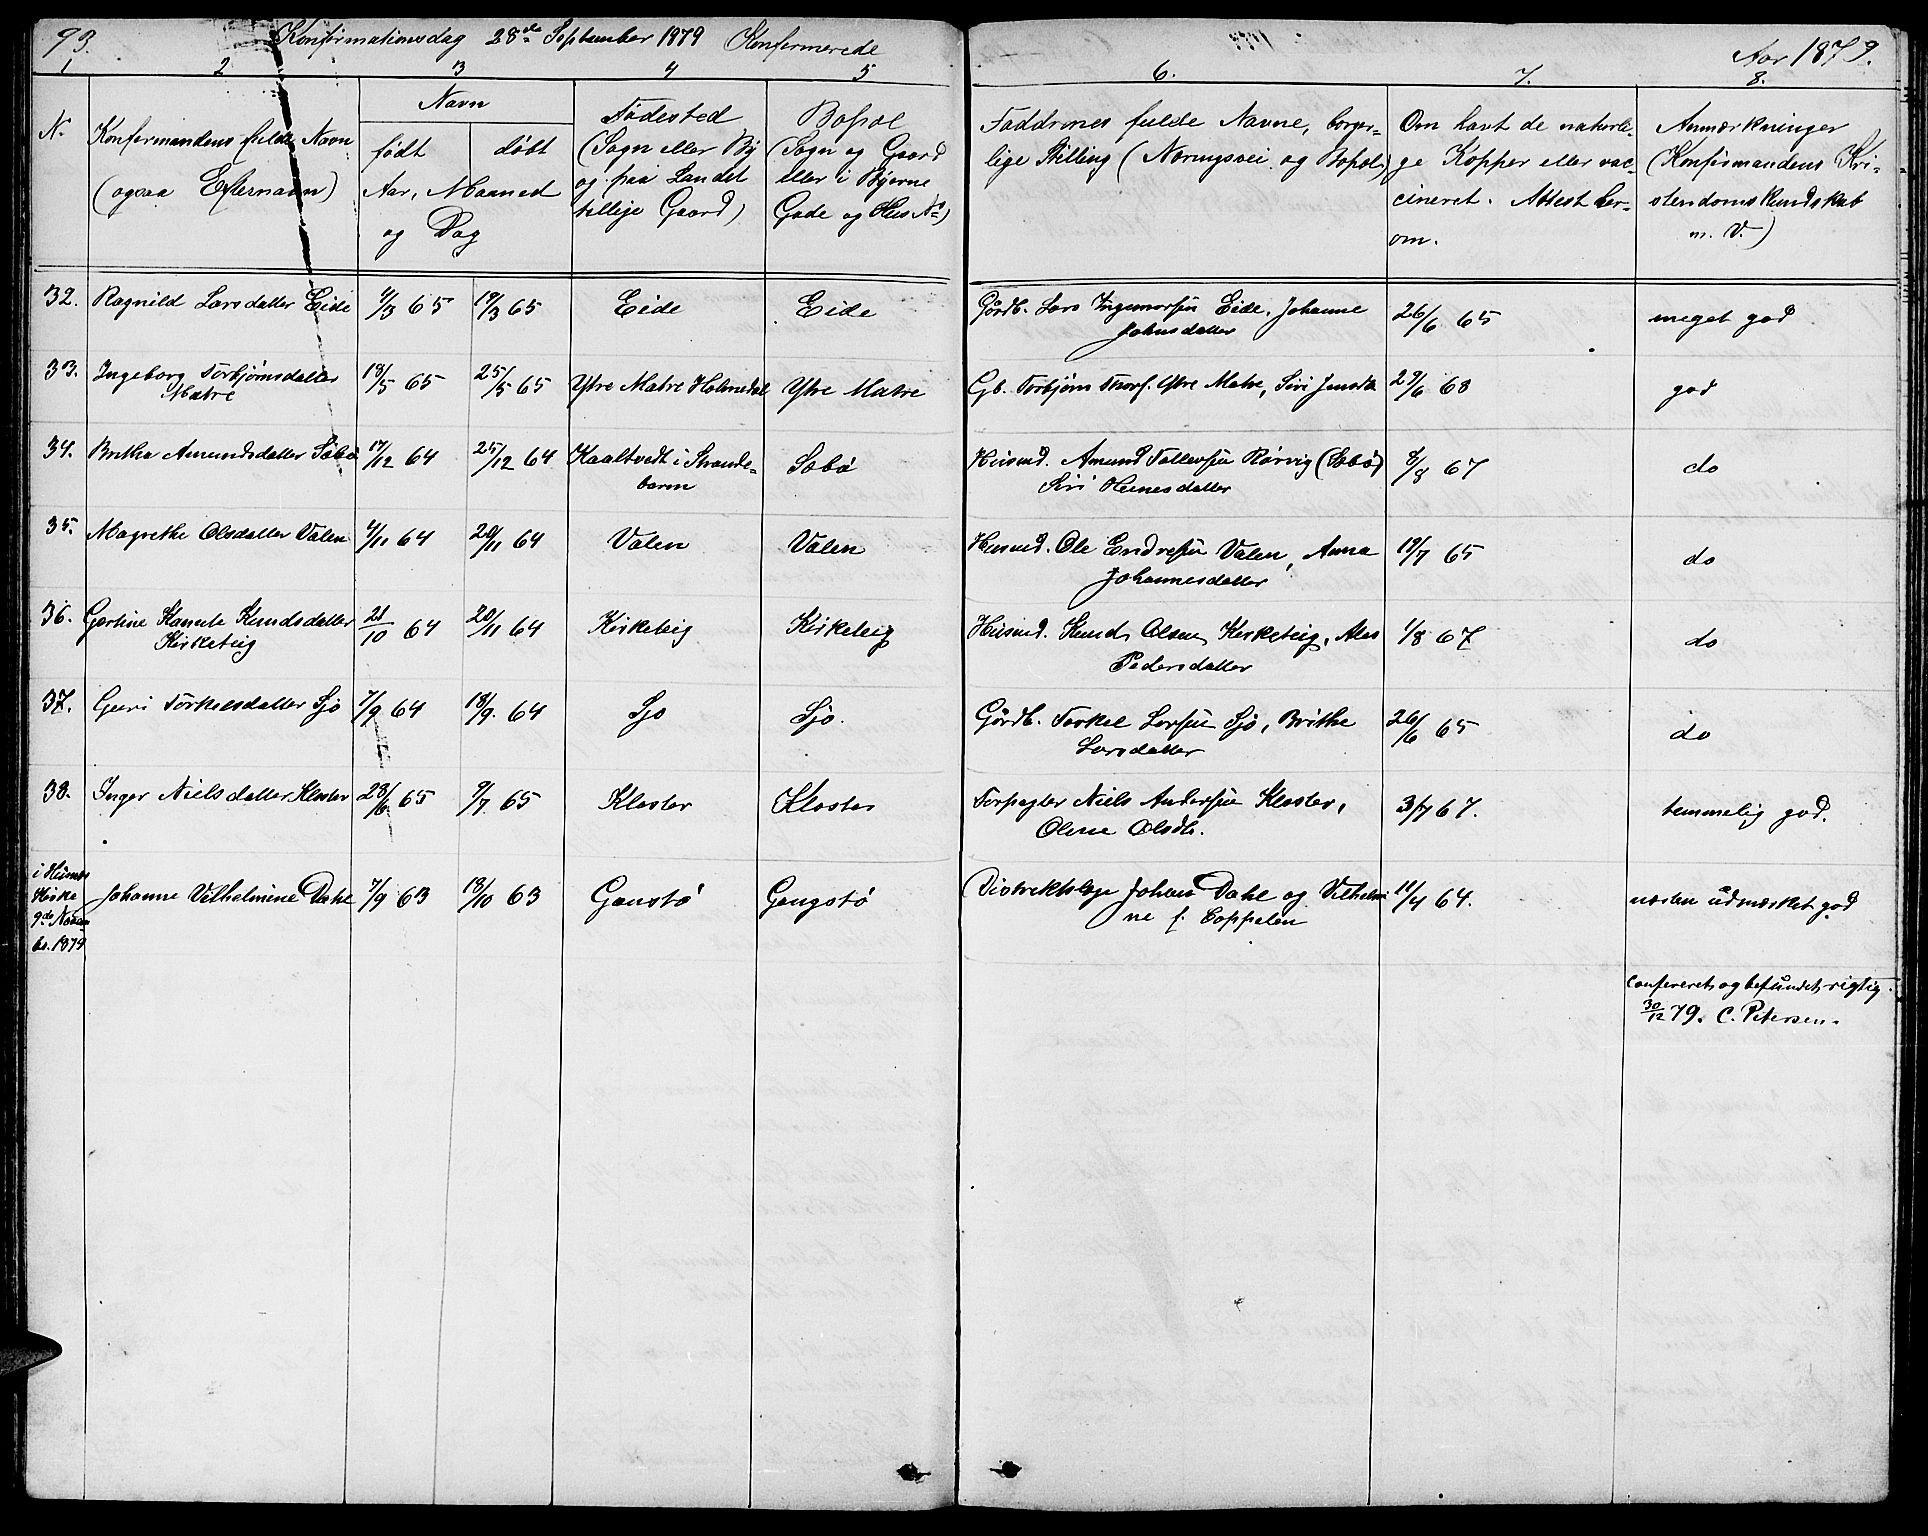 93. Konfirmationsdag 28de September 1879 Konfirmerede
Aar 1879.
1 2 3 4 5 6. 7. 8.
No
Konfirmandens fulde Navn
(ogsaa Efternavn)
Navn
født døbt
Aar, Maaned
og Dag
Fødested
(Sogn eller By
og paa Landet
tillige Gaard)
Bopæl
(Sogn og Gaard
eller i Byerne
Gade og Hus No)
Faddrenes fulde Navne, borger-
lige Stilling (Næringsvei og Bopæl)
Om havt de naturli-
ge Kopper eller vac-
cineret. Attest her-
om.
Anmærkninger
(Konfirmandens Kri-
stendomskundskab
m. V.)
32. Ragnild Larsdatter Eide 4/3 65 19/3 65 Eide Eide Gårdb. Lars Ingemarsen Eide, Johanne
Johnsdatter 26/6 65 meget god
33. Ingeborg Torbjörnsdatter
Matre 18/5 65 25/5 65 Ytre Matre Holmedal Ytre Matre Gb. Torbjörn Thors. Ytre Matre, Siri Jensdtr 29/6 68 god
34. Brithe Amundsdatter Sæbö 17/12 64 25/12 64 Kaaltvedt i Strande-
barm Sæbö Husmd. Amund Tollevsen Rörvig (Sæbö)
Siri Hansdatter 8/8 67 do
35. Magrethe Olsdatter Valen 4/11 64 20/11 64 Valen Valen Husmd. Ole Endresen Valen, Anna
Johannesdatter 19/7 65 do
36. Gortine Kamile Knudsdatter
Kirketeig 21/10 64 20/11 64 Kirketeig Kirketeig Husmd. Knud Olsen Kirketeig,
Pedersdatter 1/8 67 do
37. Guri Torkelsdatter Sjo 7/9 64 18/9. 64 Sjo Sjo. Gårdb. Torkel Larsen Sjo, Brithe
Larsdatter 26/6 65 do
38. Inger Nielsdatter Kloster 28/6 65 9/7 65 Kloster Kloster Forpagter Niels Andersen Kloster,
Olene Olsdtr. 3/7 67. temmelig god.
i Husnes
Kirke
9de Novem
br. 1879 Johanne Vilhelmine Dahl 7/9 63 18/10 63 Gaustö Gaugstö Distriktslæge Johan Dahl og Vilhelmi
ne f. Coppelen 11/4 64. næsten udmærket god
Confereret og befundet rigtig.
30/12 79. C. Petersen.